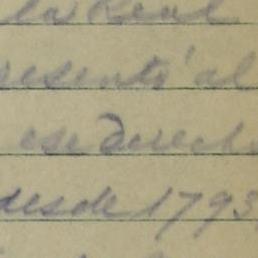 la Real
resentó al
ese derech
desde 1793